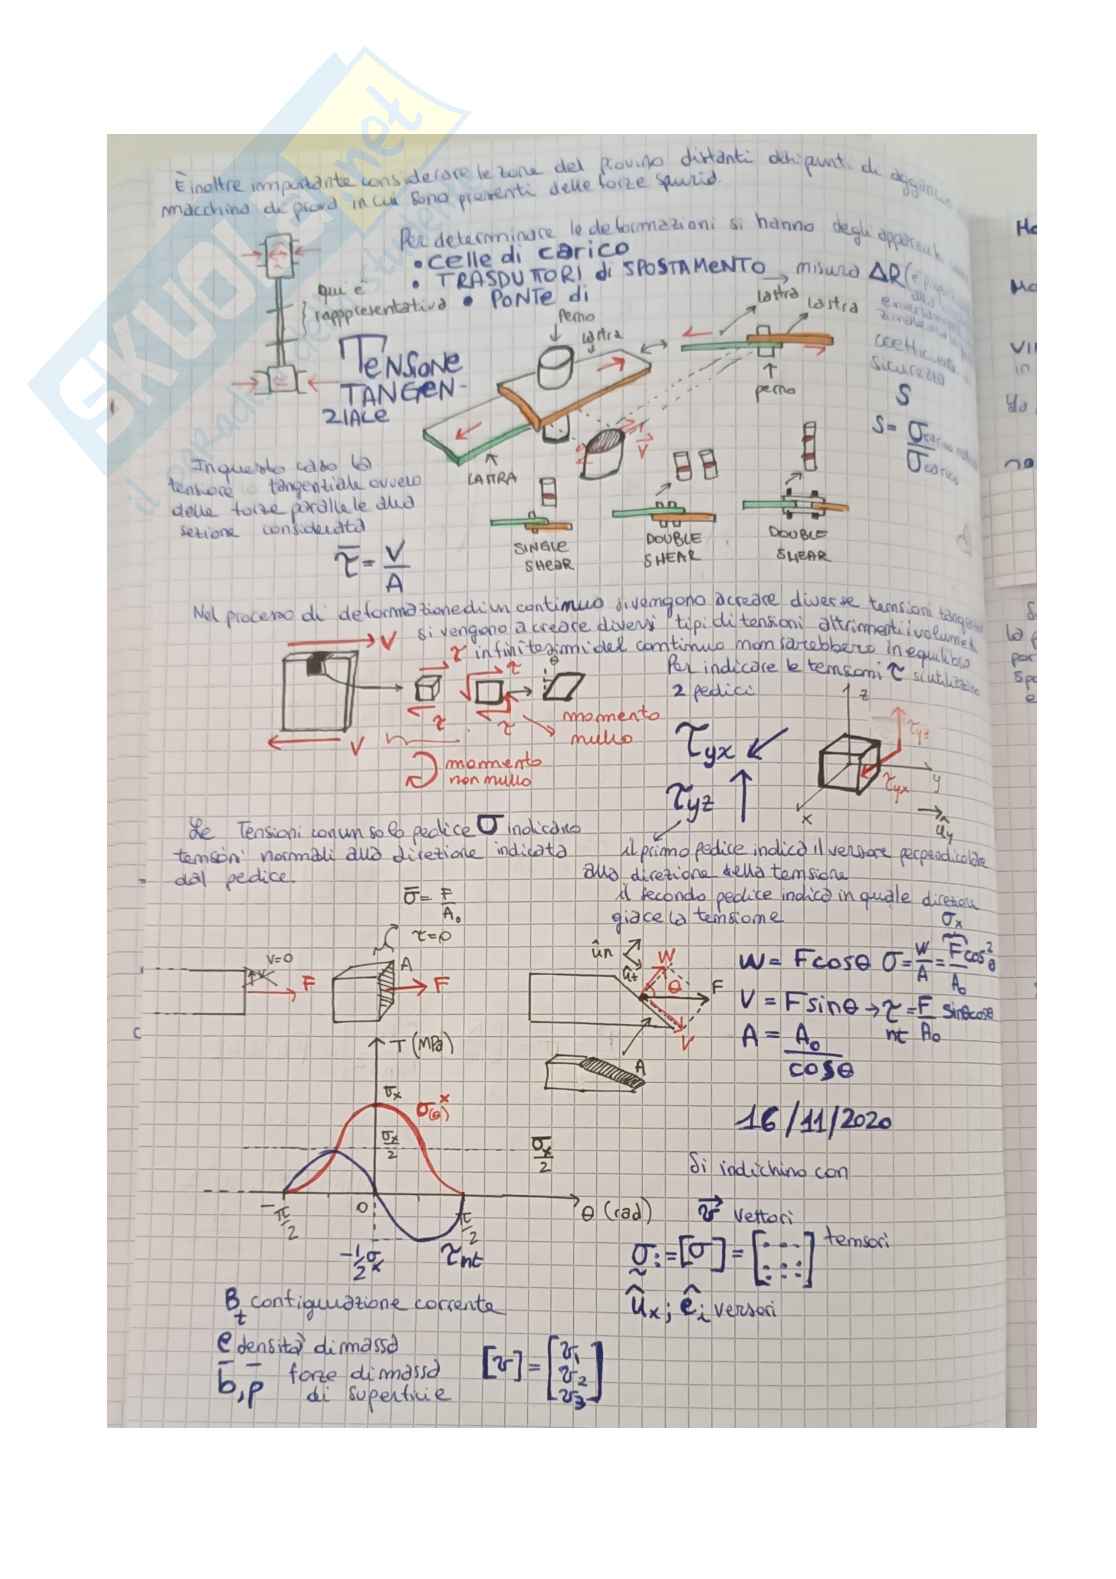 SKUOLA.net
È inoltre importante considerare le zone del provino distanti dai punti di
macchina di prova in cui sono presenti delle forze spurie.
Per determinare le deformazioni si hanno degli
• celle di carico
• TRASDUTTORI di SPOSTAMENTO → misura ΔR
• PONTE di
qui è
rappresentativa
TENSIONE
TANGEN-
ZIALE
Perno
lastra
lastra
lastra
perno
LASTRA
V
Sicurezza
S
S= σ
σ
In questo caso la
tensione è tangenziale ovvero
delle forze parallele alla
sezione considerata
τ̄ = V/A
SINGLE
SHEAR
DOUBLE
SHEAR
DOUBLE
SHEAR
Nel processo di deformazione di un continuo si vengono a creare diverse tensioni
si vengono a creare diversi tipi di tensioni altrimenti i volumetti
infinitesimi del continuo non sarebbero in equilibrio
Per indicare le tensioni τ si utilizzano
2 pedici
V
τ
τ
θ
V
τ
τ
momento
nullo
momento
non nullo
τyx ↙
τyz ↑
z
τyz
y
τyx
x
ûy
Le Tensioni con un solo pedice σ indicano
tensioni normali alla direzione indicata
dal pedice.
il primo pedice indica il versore perpendicolare
alla direzione della tensione
il secondo pedice indica in quale direzione
giace la tensione
σ̄ = F/A₀
τ=0
V=0
F
A
F
ûn
ût
W
θ
F
V
A
σx
W = Fcosθ σ = W/A = F/A₀ cos²θ
V = Fsinθ → τnt = F/A₀ sinθcosθ
A = A₀/cosθ
T (MPa)
σx
σ(θ)
σx/2
σx/2
-π/2
0
π/2
θ (rad)
-1/2 σx
τnt
16/11/2020
Si indichino con
v⃗ vettori
σ := [σ] = [ ] tensori
ûx ; êi versori
Bt configurazione corrente
ρ densità di massa
b̄, p̄ forze di massa
di superficie
[v] = [v1
v2
v3]